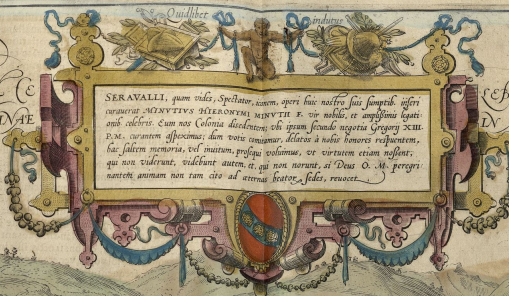 Quidlibet indutus
SERAVALLI, quam vides, Spectator, iconem, operi huic nostro suis sumptib. inseri
curaverat MINVTIVS HIERONYMI MINVTII F. vir nobilis, et amplissimis legati-
onib. celebris. Eum nos Colonia discedentem, vbi ipsum secundo negotia Gregorÿ XIII.
P.M. curantem aspeximus; dum votis comitamur, delatos à nobis honores respuentem,
hac saltem memoria, vel inuitum, prosequi voluimus, vt virtutem etiam nossent,
qui non viderunt, videbunt autem, et, qui non norunt, si Deus O. M. peregri-
nantem animam non tam cito ad aeternas beatorum sedes, reuocet.
NAE